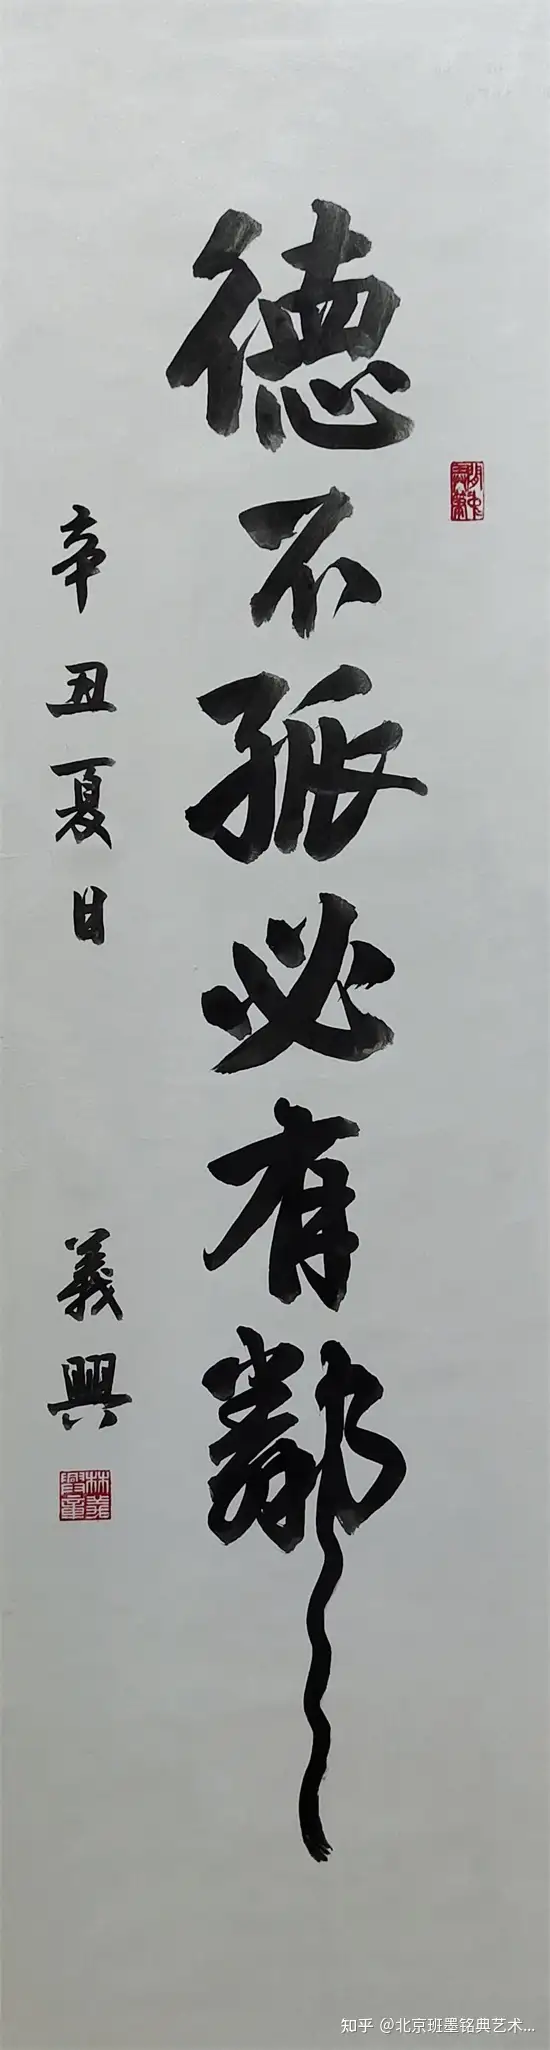 德不孤必有鄰
辛丑夏日 義興
知乎 @北京班墨铭典艺术...